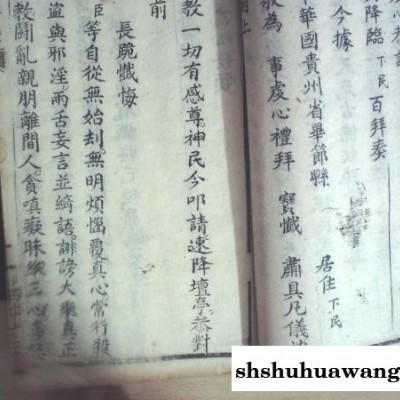 降臨 下民 百拜奏
今據
中華國貴州省畢節縣 居住 下民
敬為 事虔心禮拜 寶懺 肅具凡儀
教一切有感尊神民今叩請速降壇亭恭對
前
長跪懺悔
臣等自從無始刦無明煩惱覆真心常行殺
盜與邪淫兩舌妄言並綺語誹謗大乘真正
教鬪亂親朋離間人貪嗔癡昧縱三心
shshuhuawang